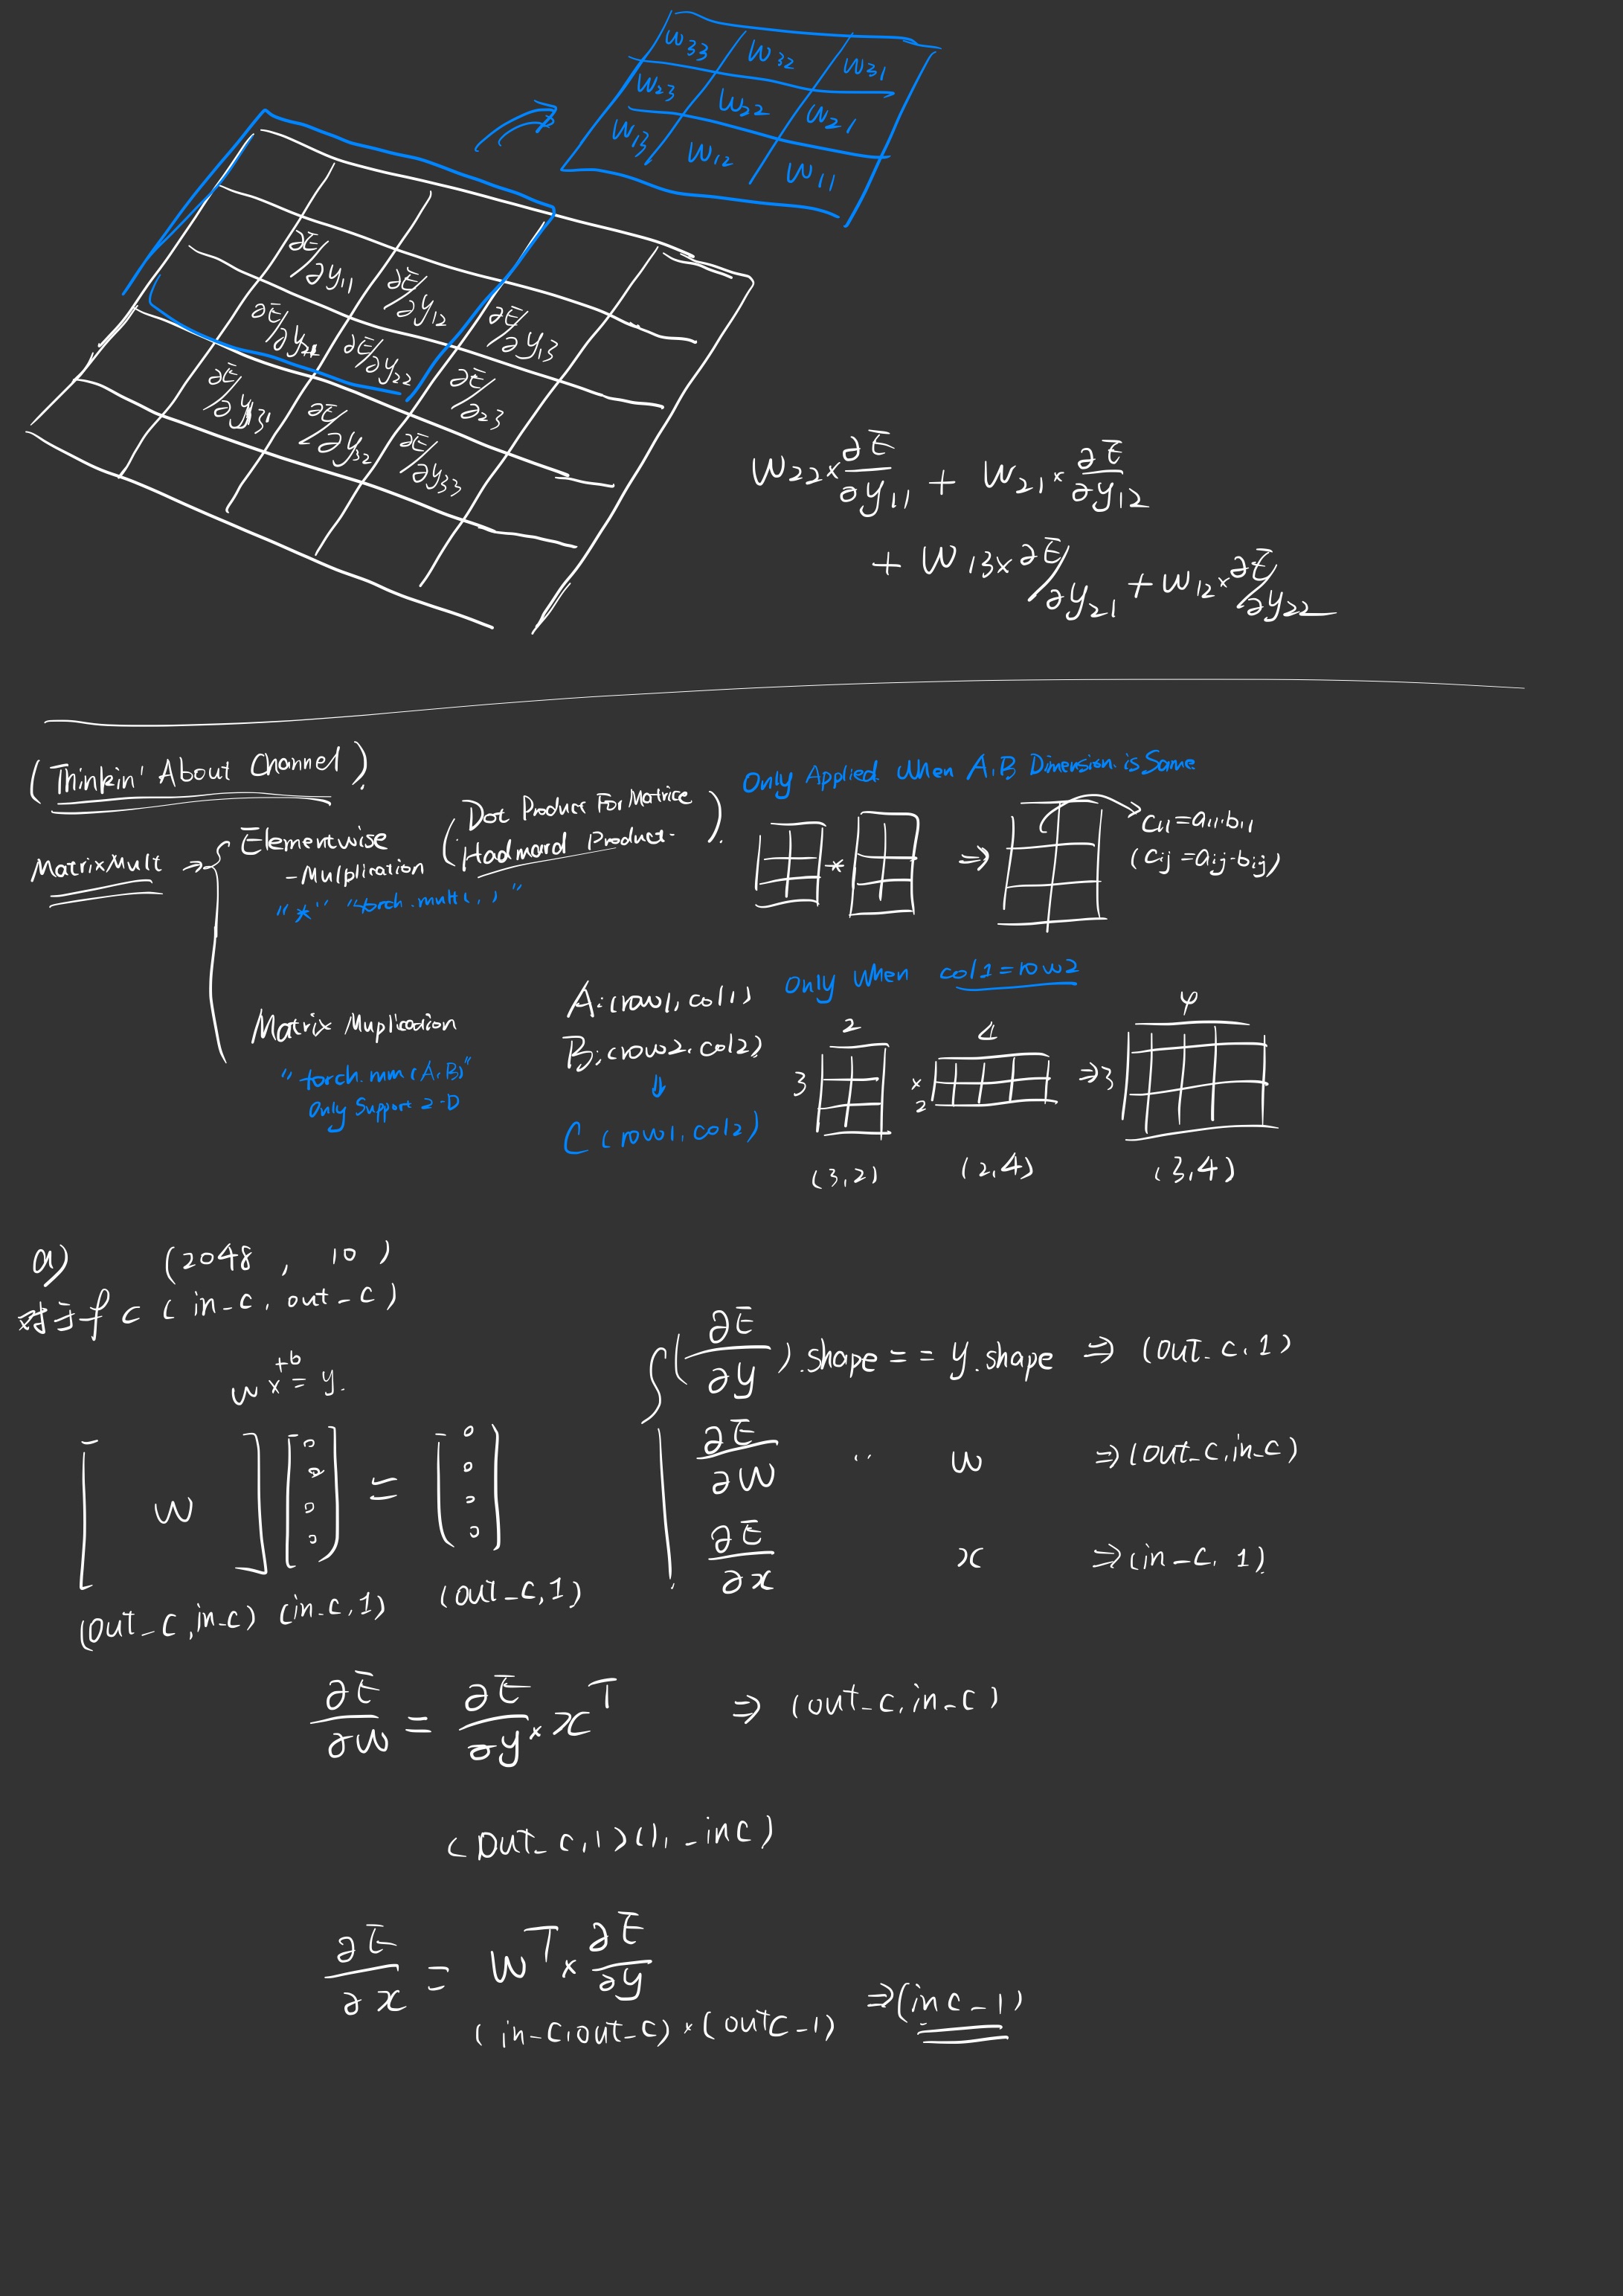 W33 W32 W31
W23 W22 W21
W13 W12 W11
∂E/∂y11 ∂E/∂y12 ∂E/∂y13
∂E/∂y21 ∂E/∂y22 ∂E/∂23
∂E/∂y31 ∂E/∂y32 ∂E/∂y33
W22 × ∂E/∂y11 + W21 × ∂E/∂y12
+ W13 × ∂E/∂y21 + W12 × ∂E/∂y22
(Thinkin' About Channel)
Only Applied When A,B Dimension is Same
MatrixMult → { Elementwise
-Mulplication
(Dot Product For Matrice
Hadmard Product.)
"*" "torch.mult( , )"
* ⇒ C11=a11·b11
(Cij=aij·bij)
Matrix Muplicaion
"torch.mm(A,B)"
Only Support 2-D
A:(row1,col1)
B:(row2,col2)
↓
C (row1,col2)
Only When col1=row2
2 4 4
3 × 2 ⇒ 3
(3,2) (2,4) (3,4)
(2048 , 10)
fc (in_c, out_c)
W x +b = y.
[ W ] [ ] = [ ]
(out_c,in_c) (in_c,1) (out_c,1)
(∂E/∂y).shape == y.shape ⇒ (out_c,1)
∂E/∂W " W ⇒ (out_c,in_c)
∂E/∂x x ⇒ (in_c,1)
∂E/∂W = ∂E/∂y × x^T ⇒ (out_c,in_c)
(out_c,1)(1,_inc)
∂E/∂x = W^T × ∂E/∂y
(in_c,out_c) × (outc_1) ⇒ (inc_1)